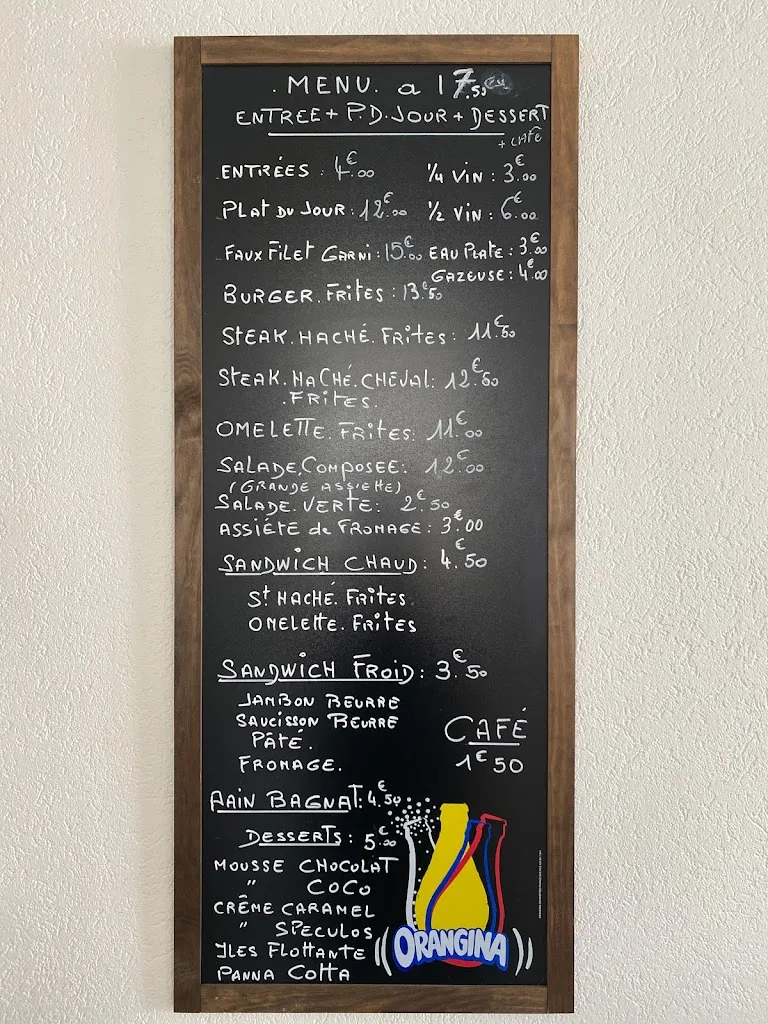 . MENU. a 17.50
ENTREE + P.D.JOUR + DESSERT
+ CAFÉ
. ENTRÉES : 4€.00 ¼ VIN : 3€.00
. PLAT DU JOUR : 12€.00 ½ VIN : 6€.00
. FAUX FILET GARNI : 15€.00 EAU PLATE : 3€.00
GAZEUSE : 4€.00
BURGER. FRITES : 13€.50
STEAK. HACHÉ. FRITES : 11€.50
STEAK. HACHÉ. CHEVAL : 12€.50
. FRITES.
OMELETTE. FRITES : 11€.00
SALADE. COMPOSEE : 12€.00
(GRANDE ASSIETTE)
SALADE. VERTE : 2€.50
ASSIÉTE de FROMAGE : 3€.00
SANDWICH CHAUD : 4€.50
St HACHÉ. FRITES
OMELETTE. FRITES
SANDWICH FROID : 3€.50
JAMBON BEURRE
SAUCISSON BEURRE
PÂTÉ.
FROMAGE.
CAFÉ
1€50
PAIN BAGNAT : 4.50
DESSERTS : 5€.00
MOUSSE CHOCOLAT
" COCO
CRÊME CARAMEL
" SPECULOS
ILES FLOTTANTE
PANNA COTTA
ORANGINA